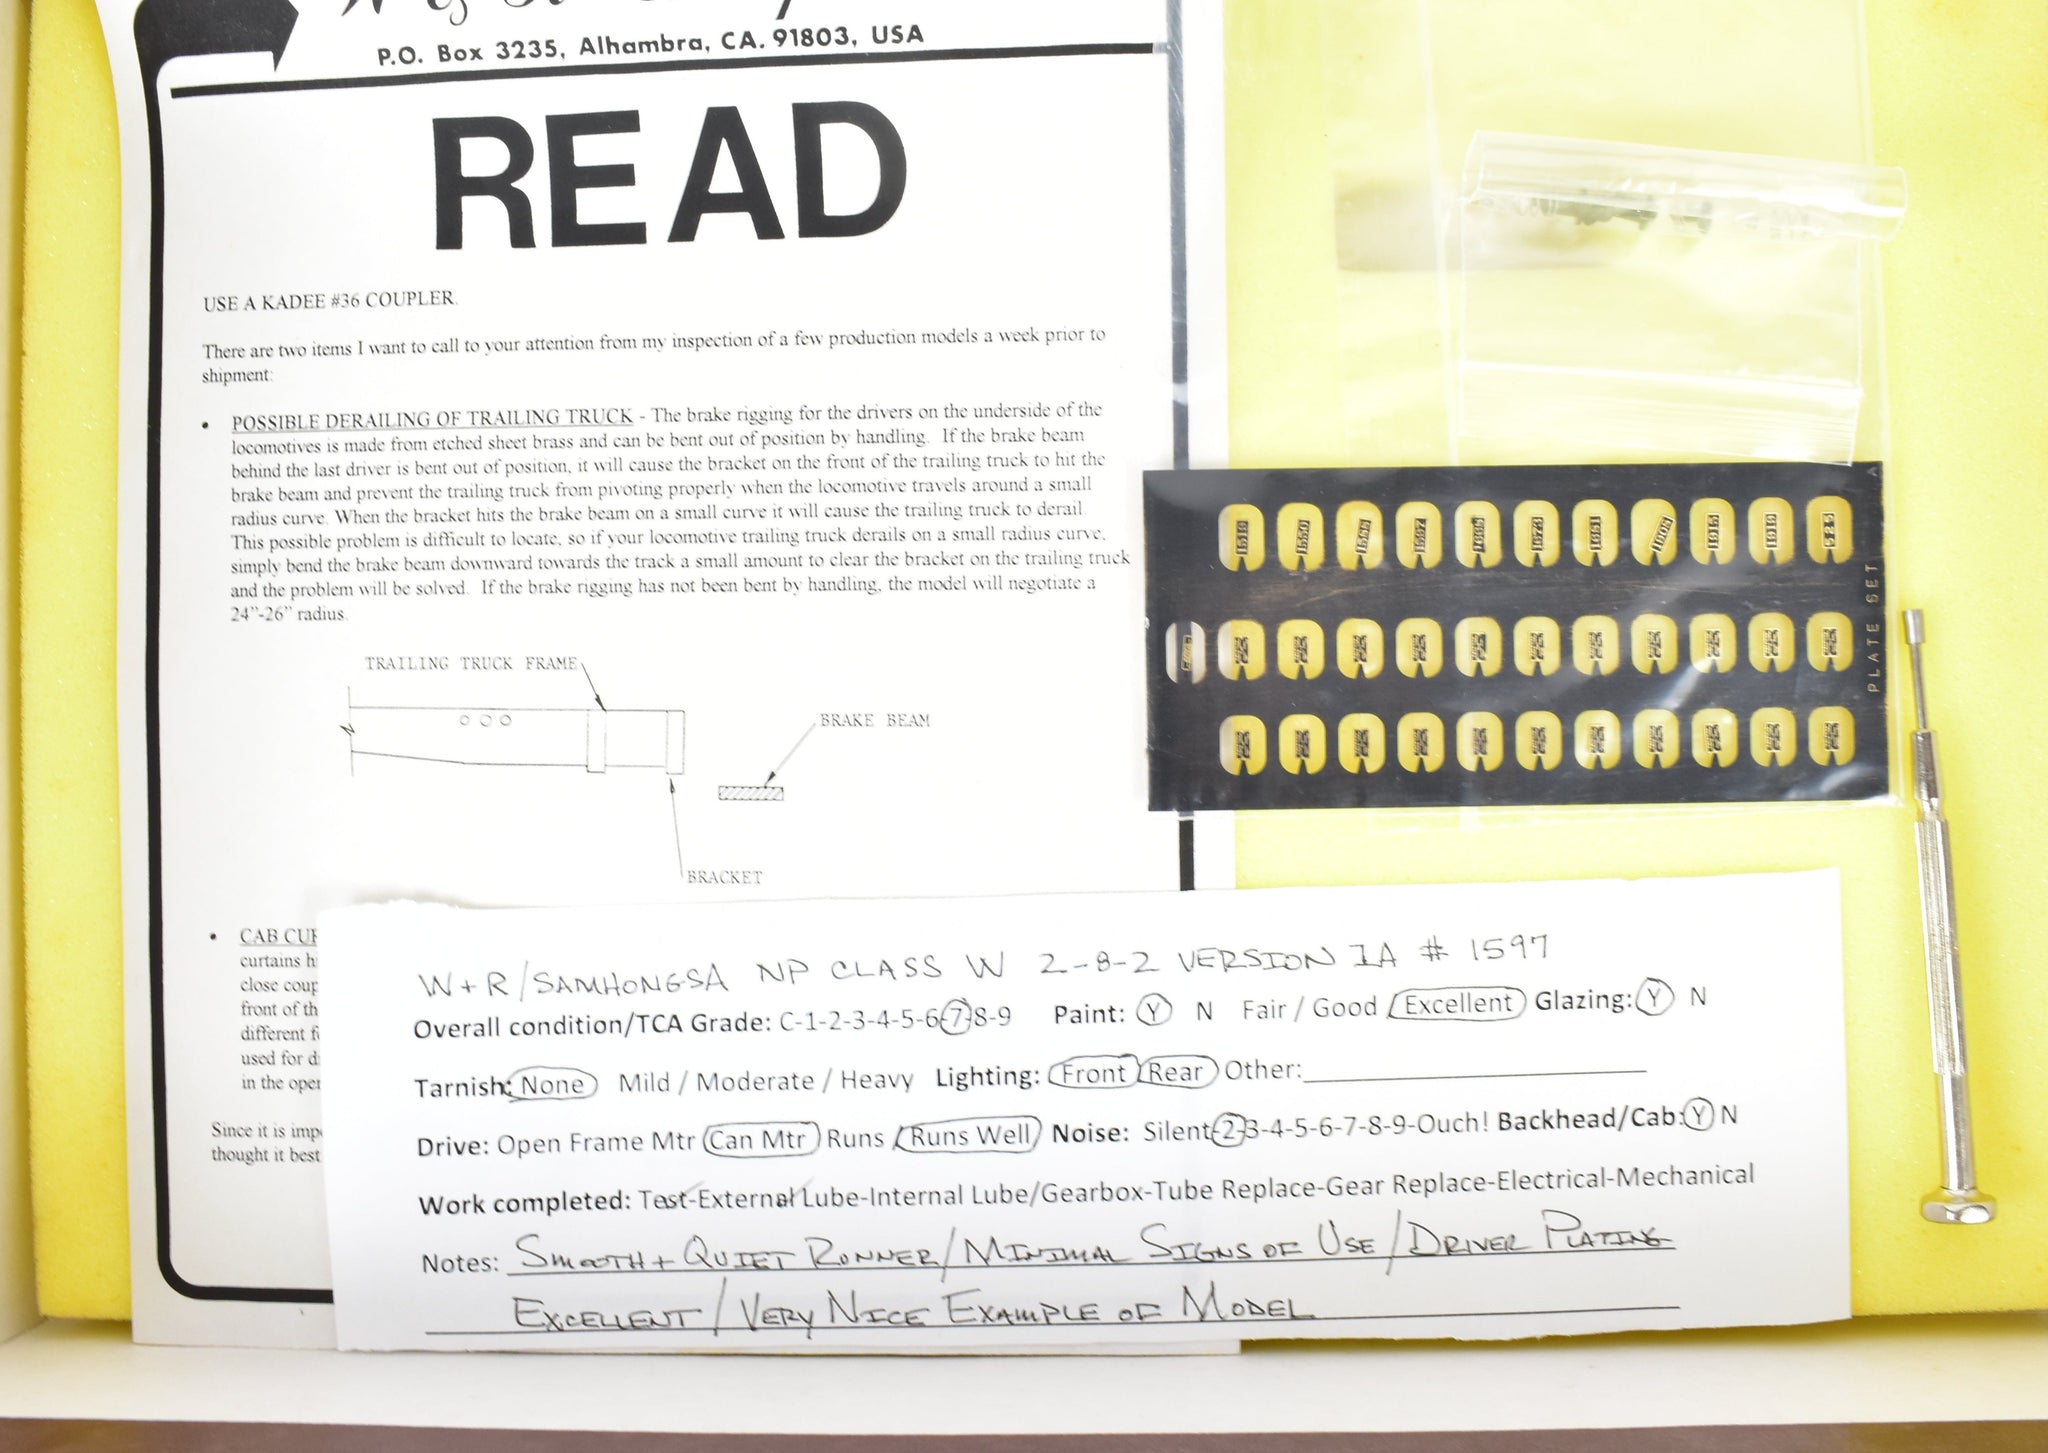 P.O. Box 3235, Alhambra, CA. 91803, USA
READ
USE A KADEE #36 COUPLER.
There are two items I want to call to your attention from my inspection of a few production models a week prior to
shipment:
• POSSIBLE DERAILING OF TRAILING TRUCK - The brake rigging for the drivers on the underside of the
locomotives is made from etched sheet brass and can be bent out of position by handling. If the brake beam
behind the last driver is bent out of position, it will cause the bracket on the front of the trailing truck to hit the
brake beam and prevent the trailing truck from pivoting properly when the locomotive travels around a small
radius curve. When the bracket hits the brake beam on a small curve it will cause the trailing truck to derail
This possible problem is difficult to locate, so if your locomotive trailing truck derails on a small radius curve,
simply bend the brake beam downward towards the track a small amount to clear the bracket on the trailing truck
and the problem will be solved. If the brake rigging has not been bent by handling, the model will negotiate a
24"-26" radius.
TRAILING TRUCK FRAME
BRAKE BEAM
BRACKET
• CAB CUR
curtains h
close coup
front of th
different f
used for d
in the oper
Since it is imp
thought it best
PLATE SET A
W+R/SAMHONGSA NP CLASS W 2-8-2 VERSION IA # 1597
Overall condition/TCA Grade: C-1-2-3-4-5-6-7-8-9 Paint: Y N Fair / Good / Excellent Glazing: Y N
Tarnish: None Mild / Moderate / Heavy Lighting: Front Rear Other:
Drive: Open Frame Mtr Can Mtr Runs / Runs Well Noise: Silent-2-3-4-5-6-7-8-9-Ouch! Backhead/Cab: Y N
Work completed: Test-External Lube-Internal Lube/Gearbox-Tube Replace-Gear Replace-Electrical-Mechanical
Notes: SMOOTH + QUIET RUNNER/MINIMAL SIGNS OF USE/DRIVER PLATING
EXCELLENT/VERY NICE EXAMPLE OF MODEL